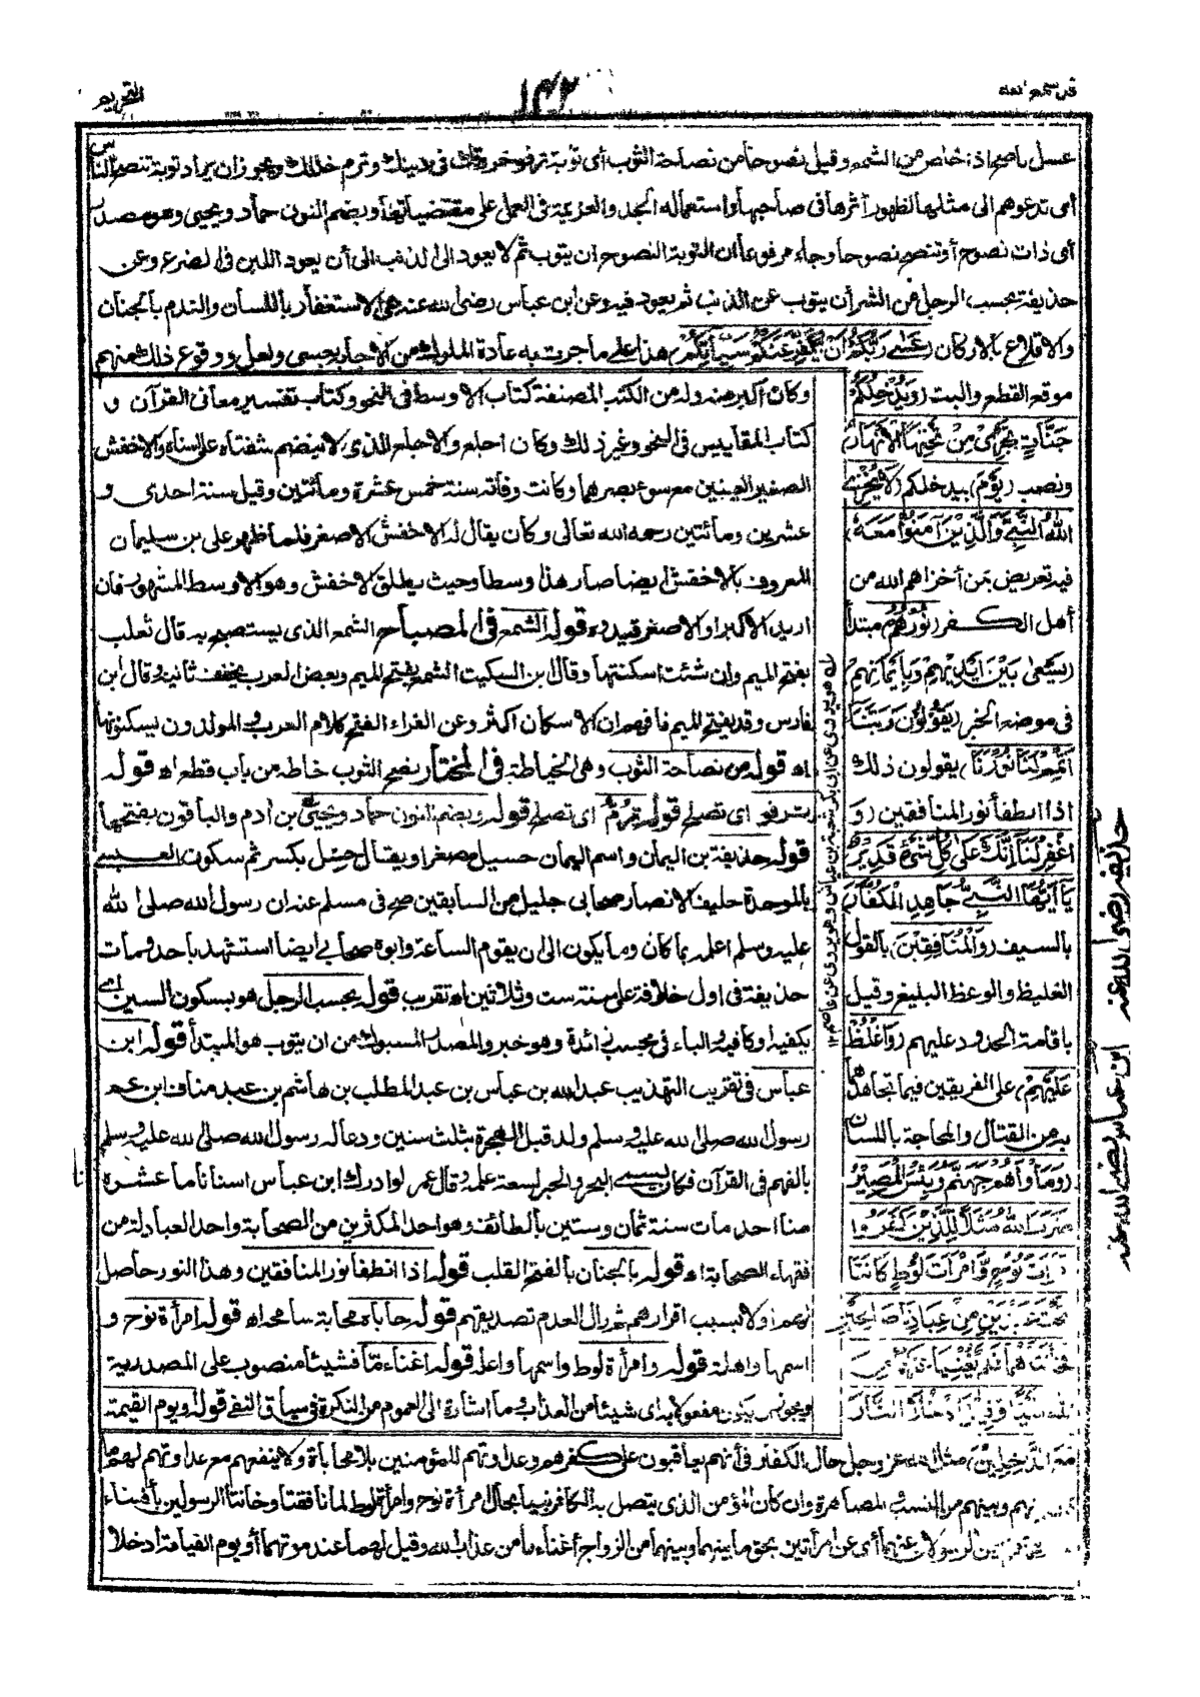 قد سمع الله
١٤٢
التحريم
عسل ناصح اذا خلص من الشمع وقيل نصوحا من نصاحة الثوب أى توبة ترفو خروقك فى دينك وترم خللك ويجوز ان يراد توبة تنصح الناس
أى تدعوهم الى مثلها لظهور أثرها فى صاحبها واستعماله الجد والعزيمة فى العمل على مقتضياتها وبضم النون حماد ويحيى وهو مصدر
أى ذات نصوح أو تنصح نصوحا وجاء مرفوعا ان التوبة النصوح ان يتوب ثم لا يعود الى الذنب الى أن يعود اللبن فى الضرع وعن
حذيفة بحسب الرجل من الشر أن يتوب عن الذنب ثم يعود فيه وعن ابن عباس رضى الله عنه هى الاستغفار باللسان والندم بالجنان
والاقلاع بالاركان (عسى ربكم أن يكفر عنكم سيآتكم) هذا على ما جرت به عادة الملوك من الاجابة بعسى ولعل ووقوع ذلك منهم
موقع القطع والبت (ويدخلكم
جنات تجرى من تحتها الانهار)
ونصب (يوم) بيدخلكم (لا يخزى
الله النبى والذين آمنوا معه)
فيه تعريض بمن أخزاهم الله من
أهل الكفر (نورهم) مبتدأ
(يسعى بين أيديهم وبأيمانهم)
فى موضع الخبر (يقولون ربنا
أتمم لنا نورنا) يقولون ذلك
اذا انطفأ نور المنافقين (و
اغفر لنا انك على كل شئ قدير
يا أيها النبى جاهد الكفار)
بالسيف (والمنافقين) بالقول
الغليظ والوعظ البليغ وقيل
باقامة الحدود عليهم (واغلظ
عليهم) على الفريقين فيما تجاهدهما
به من القتال والمحاجة باللسان
(ومأواهم جهنم وبئس المصير
ضرب الله مثلا للذين كفروا
امرأت نوح وامرأت لوط كانتا
تحت عبدين من عبادنا صالحين
فخانتاهما فلم يغنيا عنهما من
الله شيئا وقيل ادخلا النار
مع الداخلين) مثل الله عز وجل حال الكفار فى أنهم يعاقبون على كفرهم وعداوتهم للمؤمنين بلا محاباة ولا ينفعهم مع عداوتهم لهم ما
بينهم وبينهم من النسب والمصاهرة وان كان المؤمن الذى يتصل به الكافر نبيا بحال امرأة نوح وامرأة لوط لما نافقتا وخانتا الرسولين بافشاء
لم يغن الرسولان عنهما أى عن امرأتين بحق ما بينهما وبينهما من الزواج أغناء ما من عذاب الله وقيل لهما عند موتهما أو يوم القيامة ادخلا
وكان أكبر منه وله من الكتب المصنفة كتاب الاوسط فى النحو وكتاب تفسير معانى القرآن و
كتاب المقاييس فى النحو وغير ذلك وكان اجلع والاجلع الذى لا ينضم شفتاه على اسنانه والاخفش
الصغير العينين مع سوء بصرهما وكانت وفاته سنة خمس عشرة ومأتين وقيل سنة احدى و
عشرين ومأتين رحمه الله تعالى وكان يقال له الاخفش الاصغر فلما ظهر على بن سليمان
المعروف بالاخفش ايضا صار هذا وسطا وحيث يطلق الاخفش وهو الاوسط المشهور فان
اريد الاكبر او الاصغر قيدوه قوله الشمع فى المصباح الشمع الذى يستصبح به قال ثعلب
بفتح الميم وان شئت اسكنتها وقال ابن السكيت الشمع بفتح الميم وبعض العرب يخفف ثانيه وقال ابن
فارس وقد يفتح الميم فافهم ان الاسكان اكثر وعن الفراء الفتح كلام العرب والمولدون يسكنونها
اه قوله من نصاحة الثوب وهى الخياطة فى المختار نصح الثوب خاطه من باب قطع اه قوله
ترفو اى تصلح قوله ترم اى تصلح قوله وبضم النون حماد ويحيى بن ادم والباقون بفتحها
قوله حذيفة بن اليمان واسم اليمان حسيل مصغرا ويقال حسل بكسر ثم سكون العبسى
بالموحدة حليف الانصار صحابى جليل من السابقين صح فى مسلم عنه ان رسول الله صلى الله
عليه وسلم اعلمه بما كان وما يكون الى ان يقوم الساعة وابوه صحابى ايضا استشهد باحد ومات
حذيفة فى اول خلافة على سنة ست وثلاثين اه تقريب قوله بحسب الرجل هو بسكون السين اى
يكفيه او كافيه والباء فى بحسب زائدة وهو خبر والمصدر المسبوك من ان يتوب هو المبتدأ قوله ابن
عباس فى تقريب التهذيب عبد الله بن عباس بن عبد المطلب بن هاشم بن عبد مناف ابن عم
رسول الله صلى الله عليه وسلم ولد قبل الهجرة بثلث سنين ودعا له رسول الله صلى الله عليه وسلم
بالفهم فى القرآن فكان يسمى البحر والحبر لسعة علمه وقال عمر لو ادرك ابن عباس اسناننا ما عشره
منا احد مات سنة ثمان وستين بالطائف وهو احد المكثرين من الصحابة واحد العبادلة من
فقهاء الصحابة اه قوله بالجنان بالفتح القلب قوله اذا انطفأ نور المنافقين وهذا النور حاصل
لهم اولا بسبب اقرارهم ثم زال لعدم تصديقهم قوله محاباة محابة سامحه اه قوله امرأة نوح و
اسمها واهلة قوله وامرأة لوط واسمها واعلة قوله اغناء ما فشيئا منصوب على المصدرية
ويجوز ان يكون مفعولا به اى شيئا من العذاب وما اشارة الى العموم من النكرة فى سياق النفى قوله او يوم القيمة
له هو يروى عن ابى بكر شعبة بن عياش وهو يروى عن عاصم ١٢
حذيفة رضى الله عنه
ابن عباس رضى الله عنه